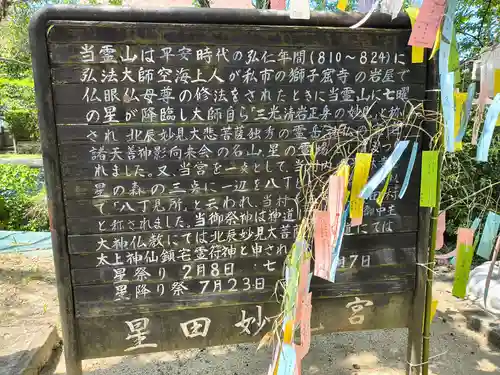 当霊山は平安時代の弘仁年間(810～824)に
弘法大師空海上人が私市の獅子窟寺の岩屋で
仏眼仏母尊の修法をされたときに当霊山に七曜
の星が降臨し大師自ら"三光清岩正身の妙見"と称
され 北辰妙見大悲菩薩独秀の霊岳 神仏の
諸天善神影向来会の名山 星の霊場
れました。又、当宮を一央として、当
星の森の三点に一辺を八丁
て"八丁見所"と言われ、当村
と称されました。当御祭神は神道
大神仏教にては北辰妙見 にては
太上神仙鎮宅霊符神と申され
星祭り 2月8日・七 7日
星降り祭 7月23日
星田妙 宮